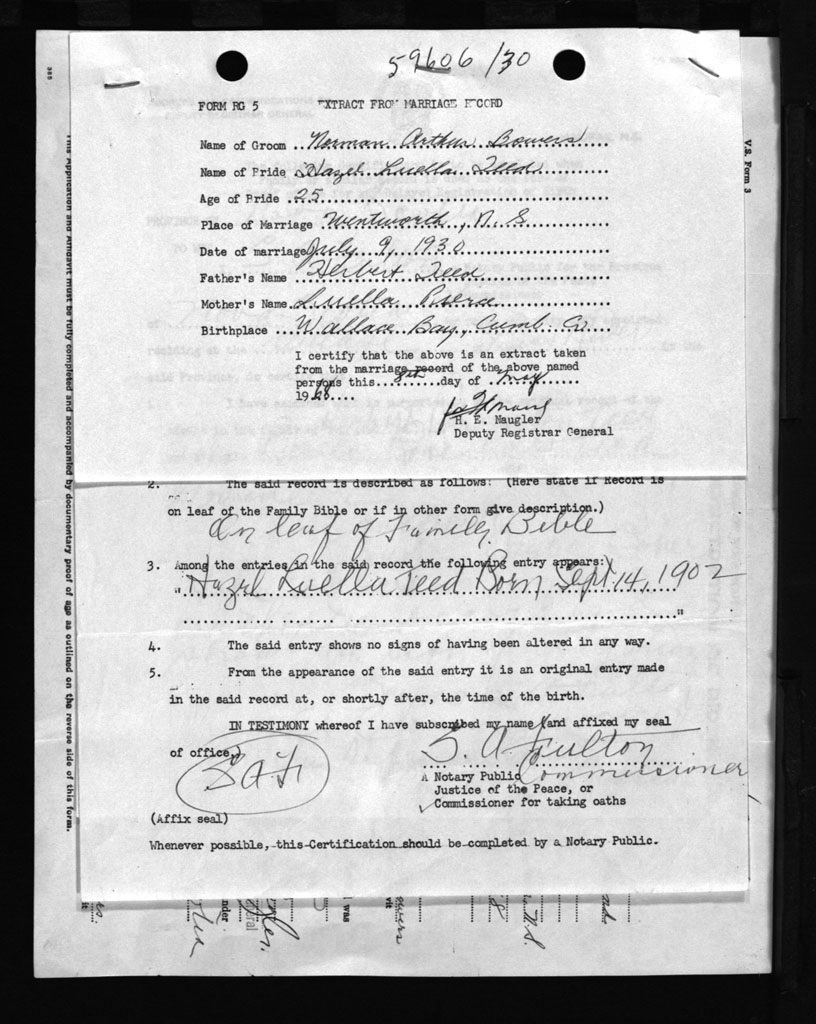 59606/30
FORM RG 5 EXTRACT FROM MARRIAGE RECORD
Name of Groom ..Norman Arthur Bowers
Name of Bride ..Hazel Luella Teed
Age of Bride ..25
Place of Marriage Wentworth, N.S.
Date of marriage July 9, 1930
Father's Name ..Herbert Teed
Mother's Name Luella
Birthplace ...Wallace Bay, Cumb. Co.
I certify that the above is an extract taken
from the marriage record of the above named
persons this ..8th..day of .May
1968....
H. E. Naugler
Deputy Registrar General
2. The said record is described as follows: (Here state if Record is
on leaf of the Family Bible or if in other form give description.)
On leaf of Family Bible
3. Among the entries in the said record the following entry appears:
"Hazel Luella Teed Born Sept 14, 1902
"
4. The said entry shows no signs of having been altered in any way.
5. From the appearance of the said entry it is an original entry made
in the said record at, or shortly after, the time of the birth.
IN TESTIMONY whereof I have subscribed my name and affixed my seal
of office.
S. A. Fulton
S.A.F.
A Notary Public Commissioner
Justice of the Peace, or
Commissioner for taking oaths
(Affix seal)
Whenever possible, this Certification should be completed by a Notary Public.
V.S. Form 3
This Application and Affidavit must be fully completed and accompanied by documentary proof of age as outlined on the reverse side of this form.
I was